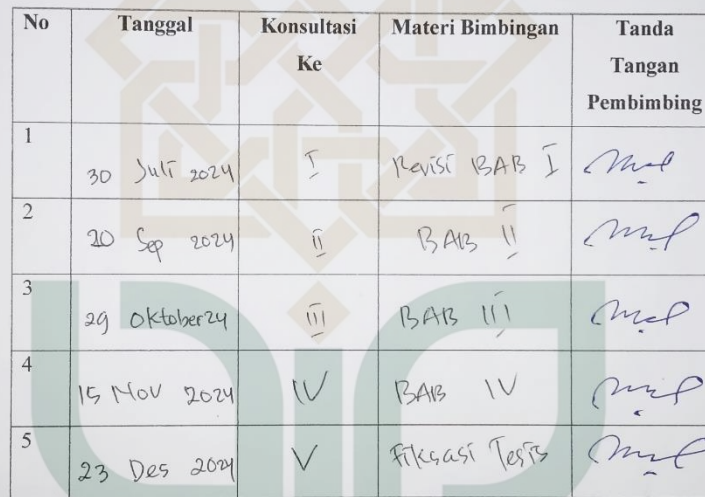 No Tanggal Konsultasi Ke Materi Bimbingan Tanda Tangan Pembimbing
1 30 Juli 2024 I Revisi BAB I
2 20 Sep 2024 II BAB II
3 29 Oktober 24 III BAB III
4 15 Nov 2024 IV BAB IV
5 23 Des 2024 V Fiksasi Tesis